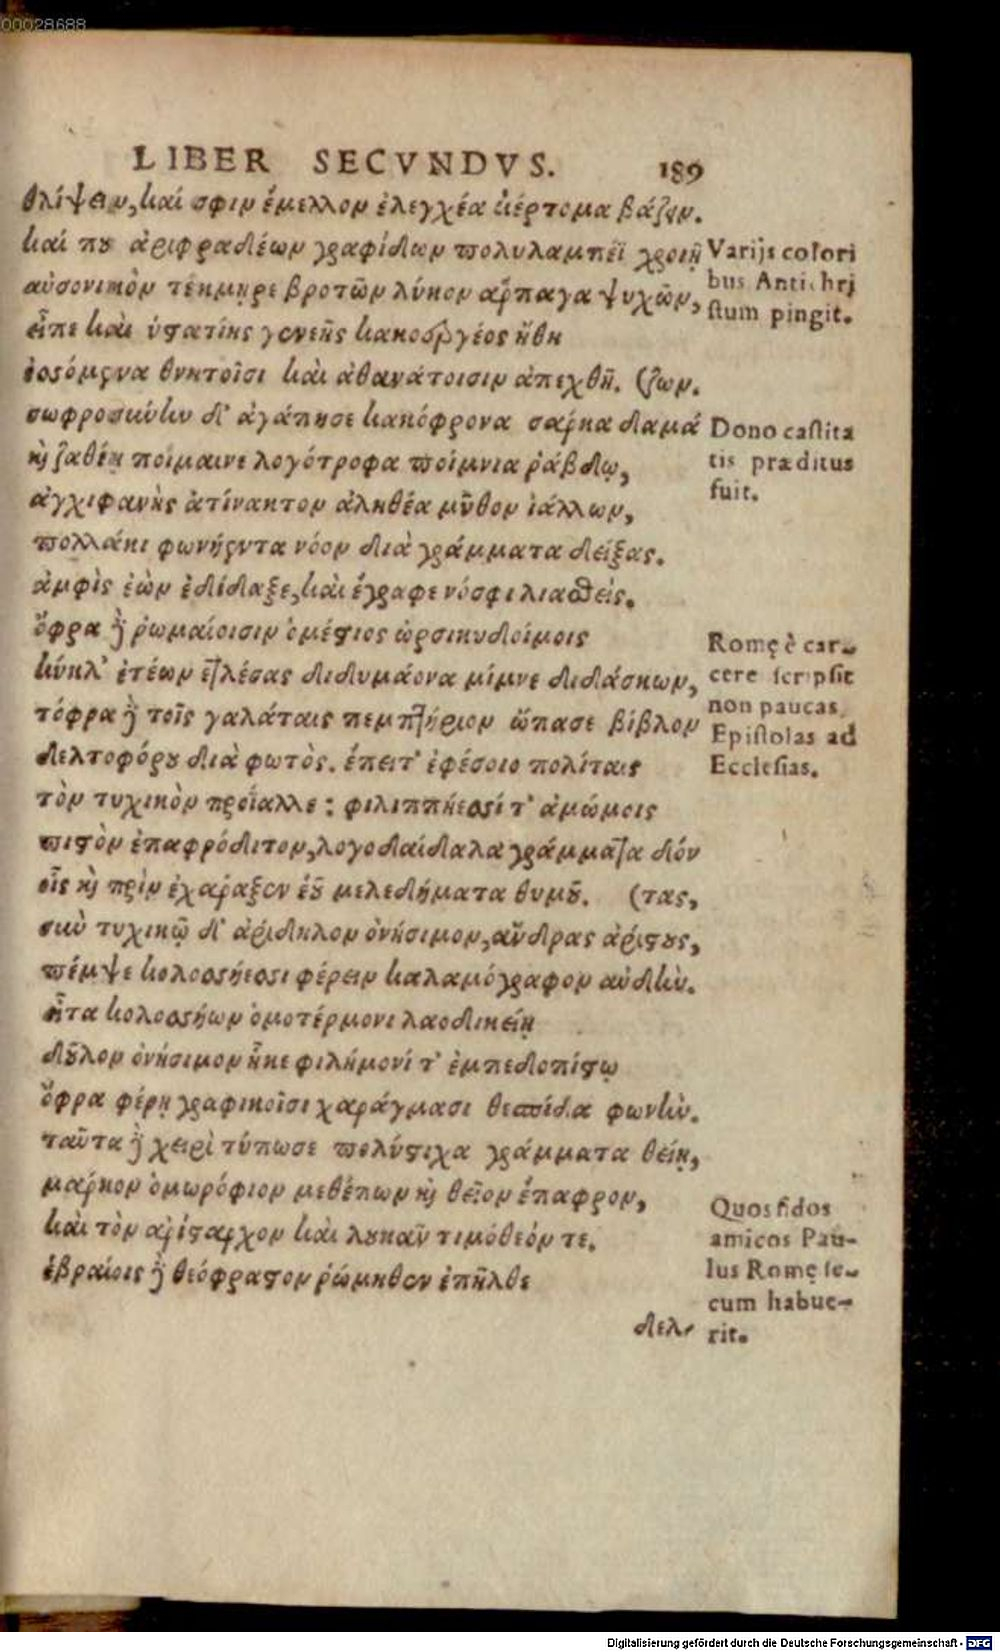 00028688
LIBER SECVNDVS. 189
θλίψειν, καί σφιν ἔμελλον ἐλεγχέα κέρτομα βάζειν.
καί που ἀριφραδέων γραφίδων πολυλαμπέϊ χροιῇ
αὐσονικὸν τέκμηρε βροτῶν λύκον ἅρπαγα ψυχῶν,
εἶπε καὶ ὑστατίης γενεῆς κακοεργέος ἤθη
ἐσσόμενα θνητοῖσι καὶ ἀθανάτοισιν ἀπεχθῆ. (ζων.
σωφροσύνην δ' ἀγάπησε κακόφρονα σάρκα δαμά
καὶ ζαθέῃ ποίμαινε λογότροφα ποίμνια ῥάβδῳ,
ἀγχιφανὴς ἀτίνακτον ἀληθέα μῦθον ἰάλλων,
πολλάκι φωνήεντα νόον διὰ γράμματα δείξας.
ἀμφὶς ἐὼν ἐδίδαξε, καὶ ἔγραφε νόσφι λιασθείς.
ὄφρα δὲ ῥωμαίοισιν ὁμέστιος ὠρσικυδοίμοις
κύκλ' ἐτέων ἐκτελέσας διδυμάονα μίμνε διδάσκων,
τόφρα δὲ τοῖς γαλάταις πεμπτήριον ὤπασε βίβλον
δελτοφόρου διὰ φωτὸς. ἔπειτ' ἐφέσοιο πολίταις
τὸν τυχικὸν προΐαλλε : φιλιππήεσσί τ' ἀμώμοις
πιστὸν ἐπαφρόδιτον, λογοδαίδαλα γράμματα δόν
οἷς καὶ πρὶν ἐχάραξεν ἑοῦ μελεδήματα θυμοῦ. (τας,
σὺν τυχικῷ δ' ἀρίδηλον ὀνήσιμον, ἄνδρας ἀρίστους,
πέμψε κολοσσήεσσι φέρειν καλαμόγραφον αὐδήν.
εἶτα κολοσσήων ὁμοτέρμονι λαοδικείῃ
δοῦλον ὀνήσιμον ἧκε φιλήμονί τ' ἐμπεδοπίστῳ
ὄφρα φέρῃ γραφικοῖσι χαράγμασι θεσπίδα φωνήν.
ταῦτα δὲ χειρὶ τύπωσε πολύστιχα γράμματα θείῃ,
μάρκον ὁμωρόφιον μεθέπων καὶ θεῖον ἔπαφρον,
καὶ τὸν ἀρίσταρχον καὶ λουκᾶν τιμόθεόν τε.
ἑβραίοις δὲ θεόφραστον ῥώμηθεν ἐπῆλθε
δελ-
Varijs colori
bus Antichri
stum pingit.
Dono castita
tis præditus
fuit.
Romę è car-
cere scripsit
non paucas
Epistolas ad
Ecclesias.
Quos fidos
amicos Pau-
lus Romę se-
cum habue-
rit.
Digitalisierung gefördert durch die Deutsche Forschungsgemeinschaft - DFG